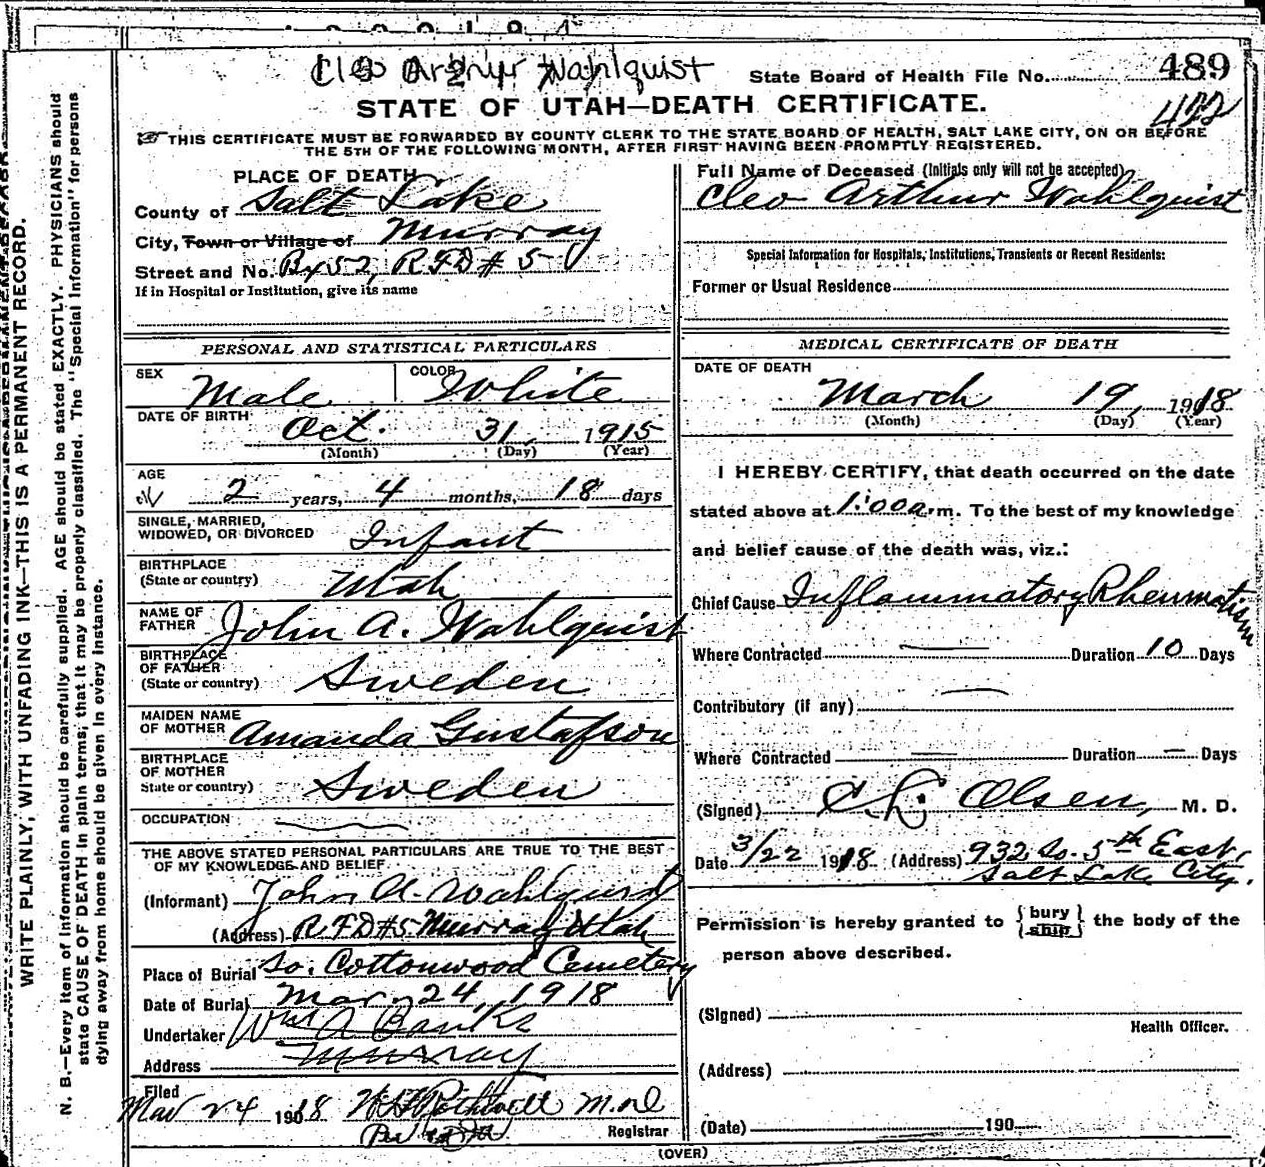 Cleo Arthur Wahlquist
State Board of Health File No. 489
422
STATE OF UTAH—DEATH CERTIFICATE.
THIS CERTIFICATE MUST BE FORWARDED BY COUNTY CLERK TO THE STATE BOARD OF HEALTH, SALT LAKE CITY, ON OR BEFORE
THE 5TH OF THE FOLLOWING MONTH, AFTER FIRST HAVING BEEN PROMPTLY REGISTERED.
WRITE PLAINLY, WITH UNFADING INK—THIS IS A PERMANENT RECORD.
N. B.—Every item of information should be carefully supplied. AGE should be stated EXACTLY. PHYSICIANS should
state CAUSE OF DEATH in plain terms, that it may be properly classified. The "Special Information" for persons
dying away from home should be given in every instance.
PLACE OF DEATH
County of Salt Lake
City, Town or Village of Murray
Street and No. Bx 52, RFD # 5
If in Hospital or Institution, give its name
Full Name of Deceased (Initials only will not be accepted)
Cleo Arthur Wahlquist
Special Information for Hospitals, Institutions, Transients or Recent Residents:
Former or Usual Residence
PERSONAL AND STATISTICAL PARTICULARS
SEX Male
COLOR White
DATE OF BIRTH
Oct. 31, 1915
(Month) (Day) (Year)
AGE
2 years, 4 months, 18 days
SINGLE, MARRIED,
WIDOWED, OR DIVORCED Infant
BIRTHPLACE
(State or country) Utah
NAME OF
FATHER John A. Wahlquist
BIRTHPLACE
OF FATHER
(State or country) Sweden
MAIDEN NAME
OF MOTHER Amanda Gustafson
BIRTHPLACE
OF MOTHER
State or country) Sweden
OCCUPATION
THE ABOVE STATED PERSONAL PARTICULARS ARE TRUE TO THE BEST
OF MY KNOWLEDGE AND BELIEF
(Informant) John A. Wahlquist
(Address) RFD #5 Murray Utah
Place of Burial So. Cottonwood Cemetery
Date of Burial Mar 24, 1918
Undertaker Wm A Banks
Address Murray
Filed
Mar 24 1918 M.D.
Registrar
MEDICAL CERTIFICATE OF DEATH
DATE OF DEATH
March 19, 1918
(Month) (Day) (Year)
I HEREBY CERTIFY, that death occurred on the date
stated above at 1:00 a.m. To the best of my knowledge
and belief cause of the death was, viz.:
Chief Cause Inflammatory Rheumatism
Where Contracted — Duration 10 Days
Contributory (if any) —
Where Contracted — Duration — Days
(Signed) C L Olsen, M. D.
Date 3/22 1918 (Address) 932 So. 5th East,
Salt Lake City.
Permission is hereby granted to {bury ship} the body of the
person above described.
(Signed)
Health Officer.
(Address)
(Date) 190
(OVER)